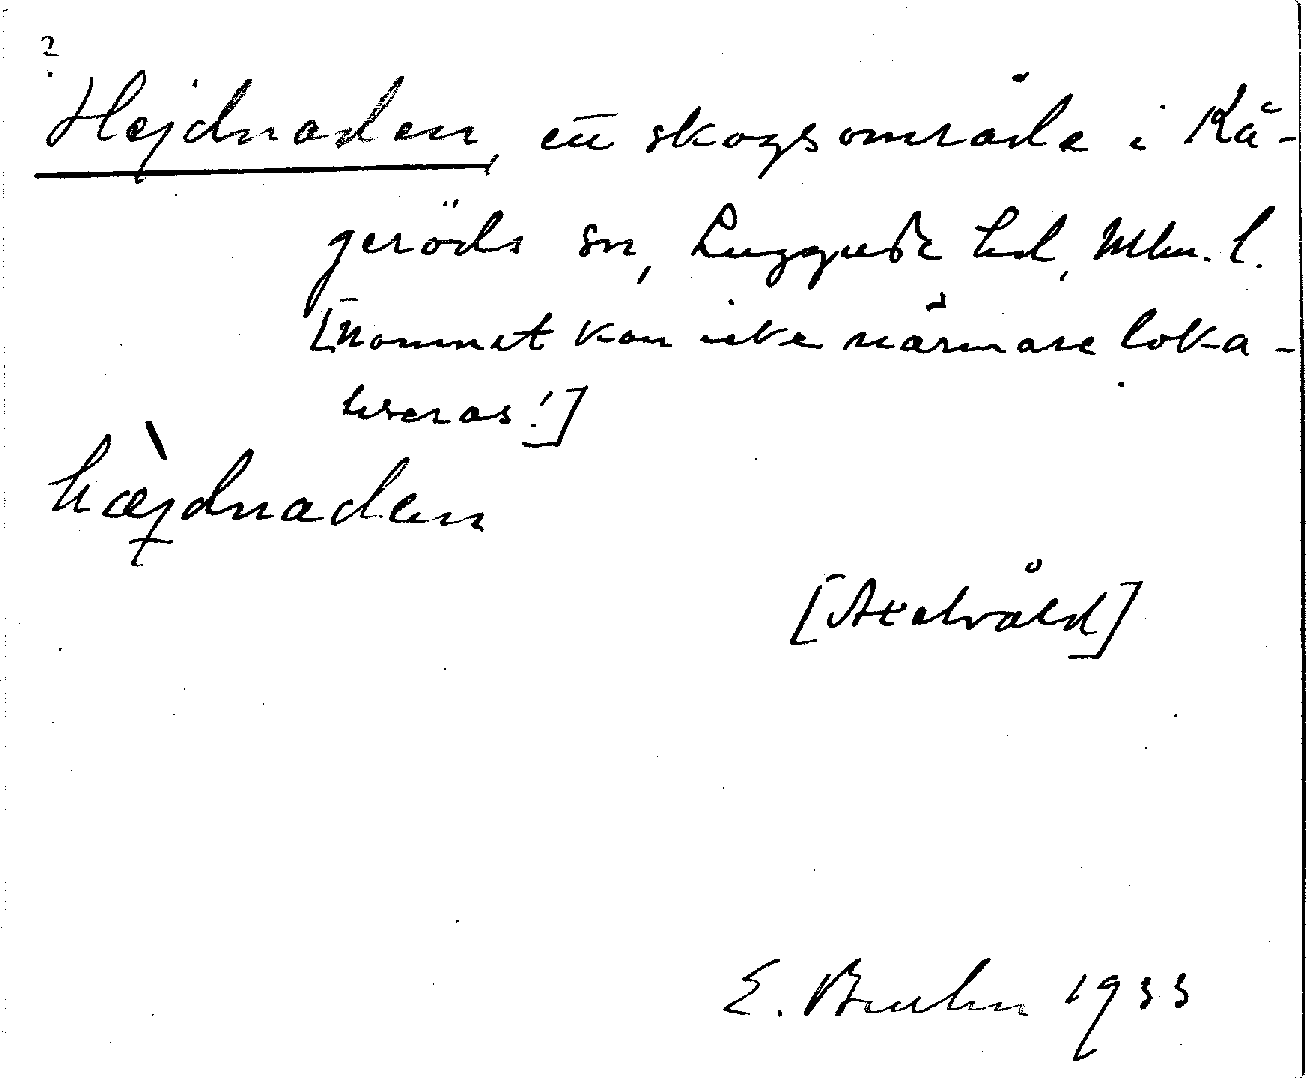 ?
Hejdnaden, ett skogsområde i Kå-
geröds sn, Luggude hd, Mlm. l.
[Namnet kan icke närmare loka-
liseras!]
hæ̀jdnaden
[Axelvåld]
E. Bruhn 1933